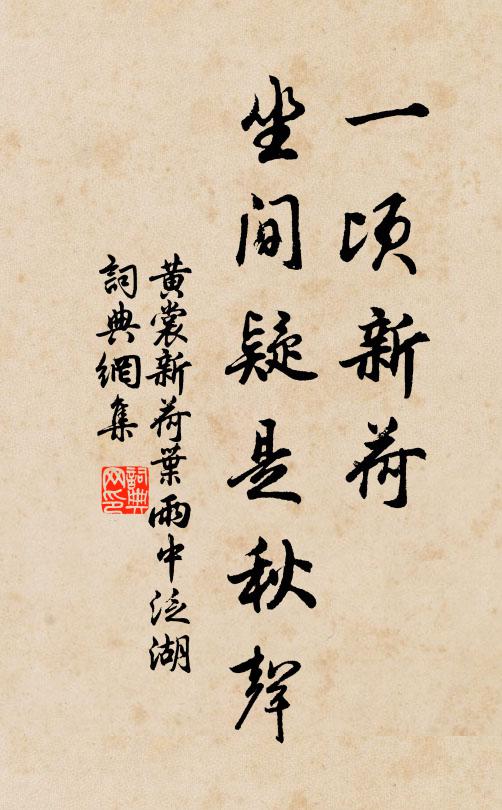 一頃新荷
坐间疑是秋聲
黃裳新荷葉雨中泛湖
詞典網集
詞典
网印